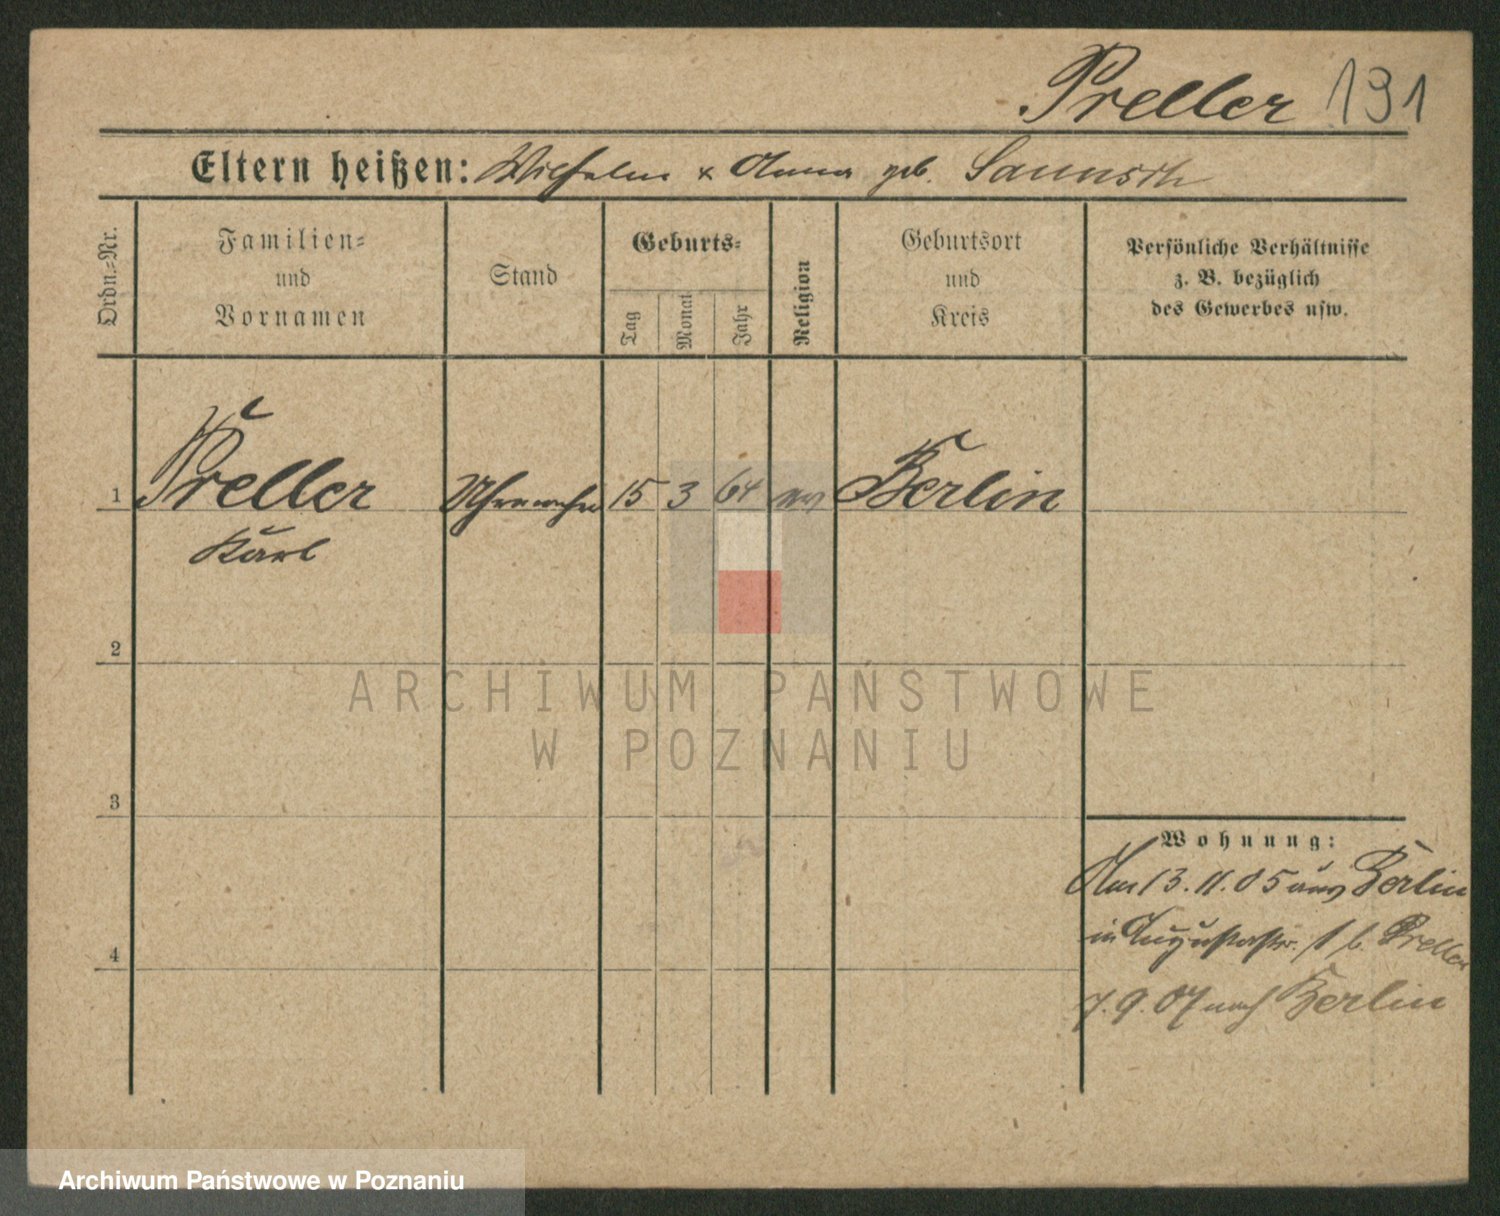 Preller 191
Eltern heißen: Wilhelm & Anna geb.
Ordn.-Nr.
Familien-
und
Vornamen
Stand
Geburts-
Tag
Monat
Jahr
Religion
Geburtsort
und
Kreis
Persönliche Verhältnisse
z. B. bezüglich
des Gewerbes usw.
1 Preller Uhrmacher 15 3 64 ev Berlin
Karl
2
ARCHIWUM PAŃSTWOWE
W POZNANIU
3
Wohnung:
Am 13.11.05 aus Berlin
in Augustastr. 1 b. Preller
4
7.9.07 nach Berlin
Archiwum Państwowe w Poznaniu